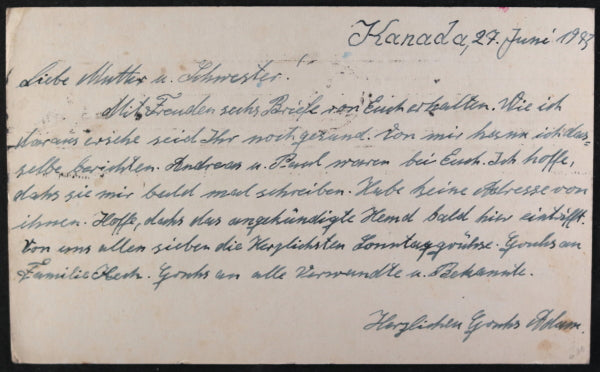 Kanada, 27. Juni 194
Liebe Mutter u. Schwester.
Mit Freuden sechs Briefe von Euch erhalten. Wie ich
daraus ersehe seid Ihr noch gesund. Von mir kann ich das-
selbe berichten. Andreas u. Paul waren bei Euch. Ich hoffe,
dahs sie mir bald mal schreiben. Habe keine Adresse von
ihnen. Hoffe, dahs das angekündigte Hemd bald hier eintrifft.
Von uns allen sieben die Herzlichsten Sonntagsgrühse. Gruhs an
Familie Gruhs an alle Verwandte u. Bekannte.
Herzlichen Gruhs Adam.